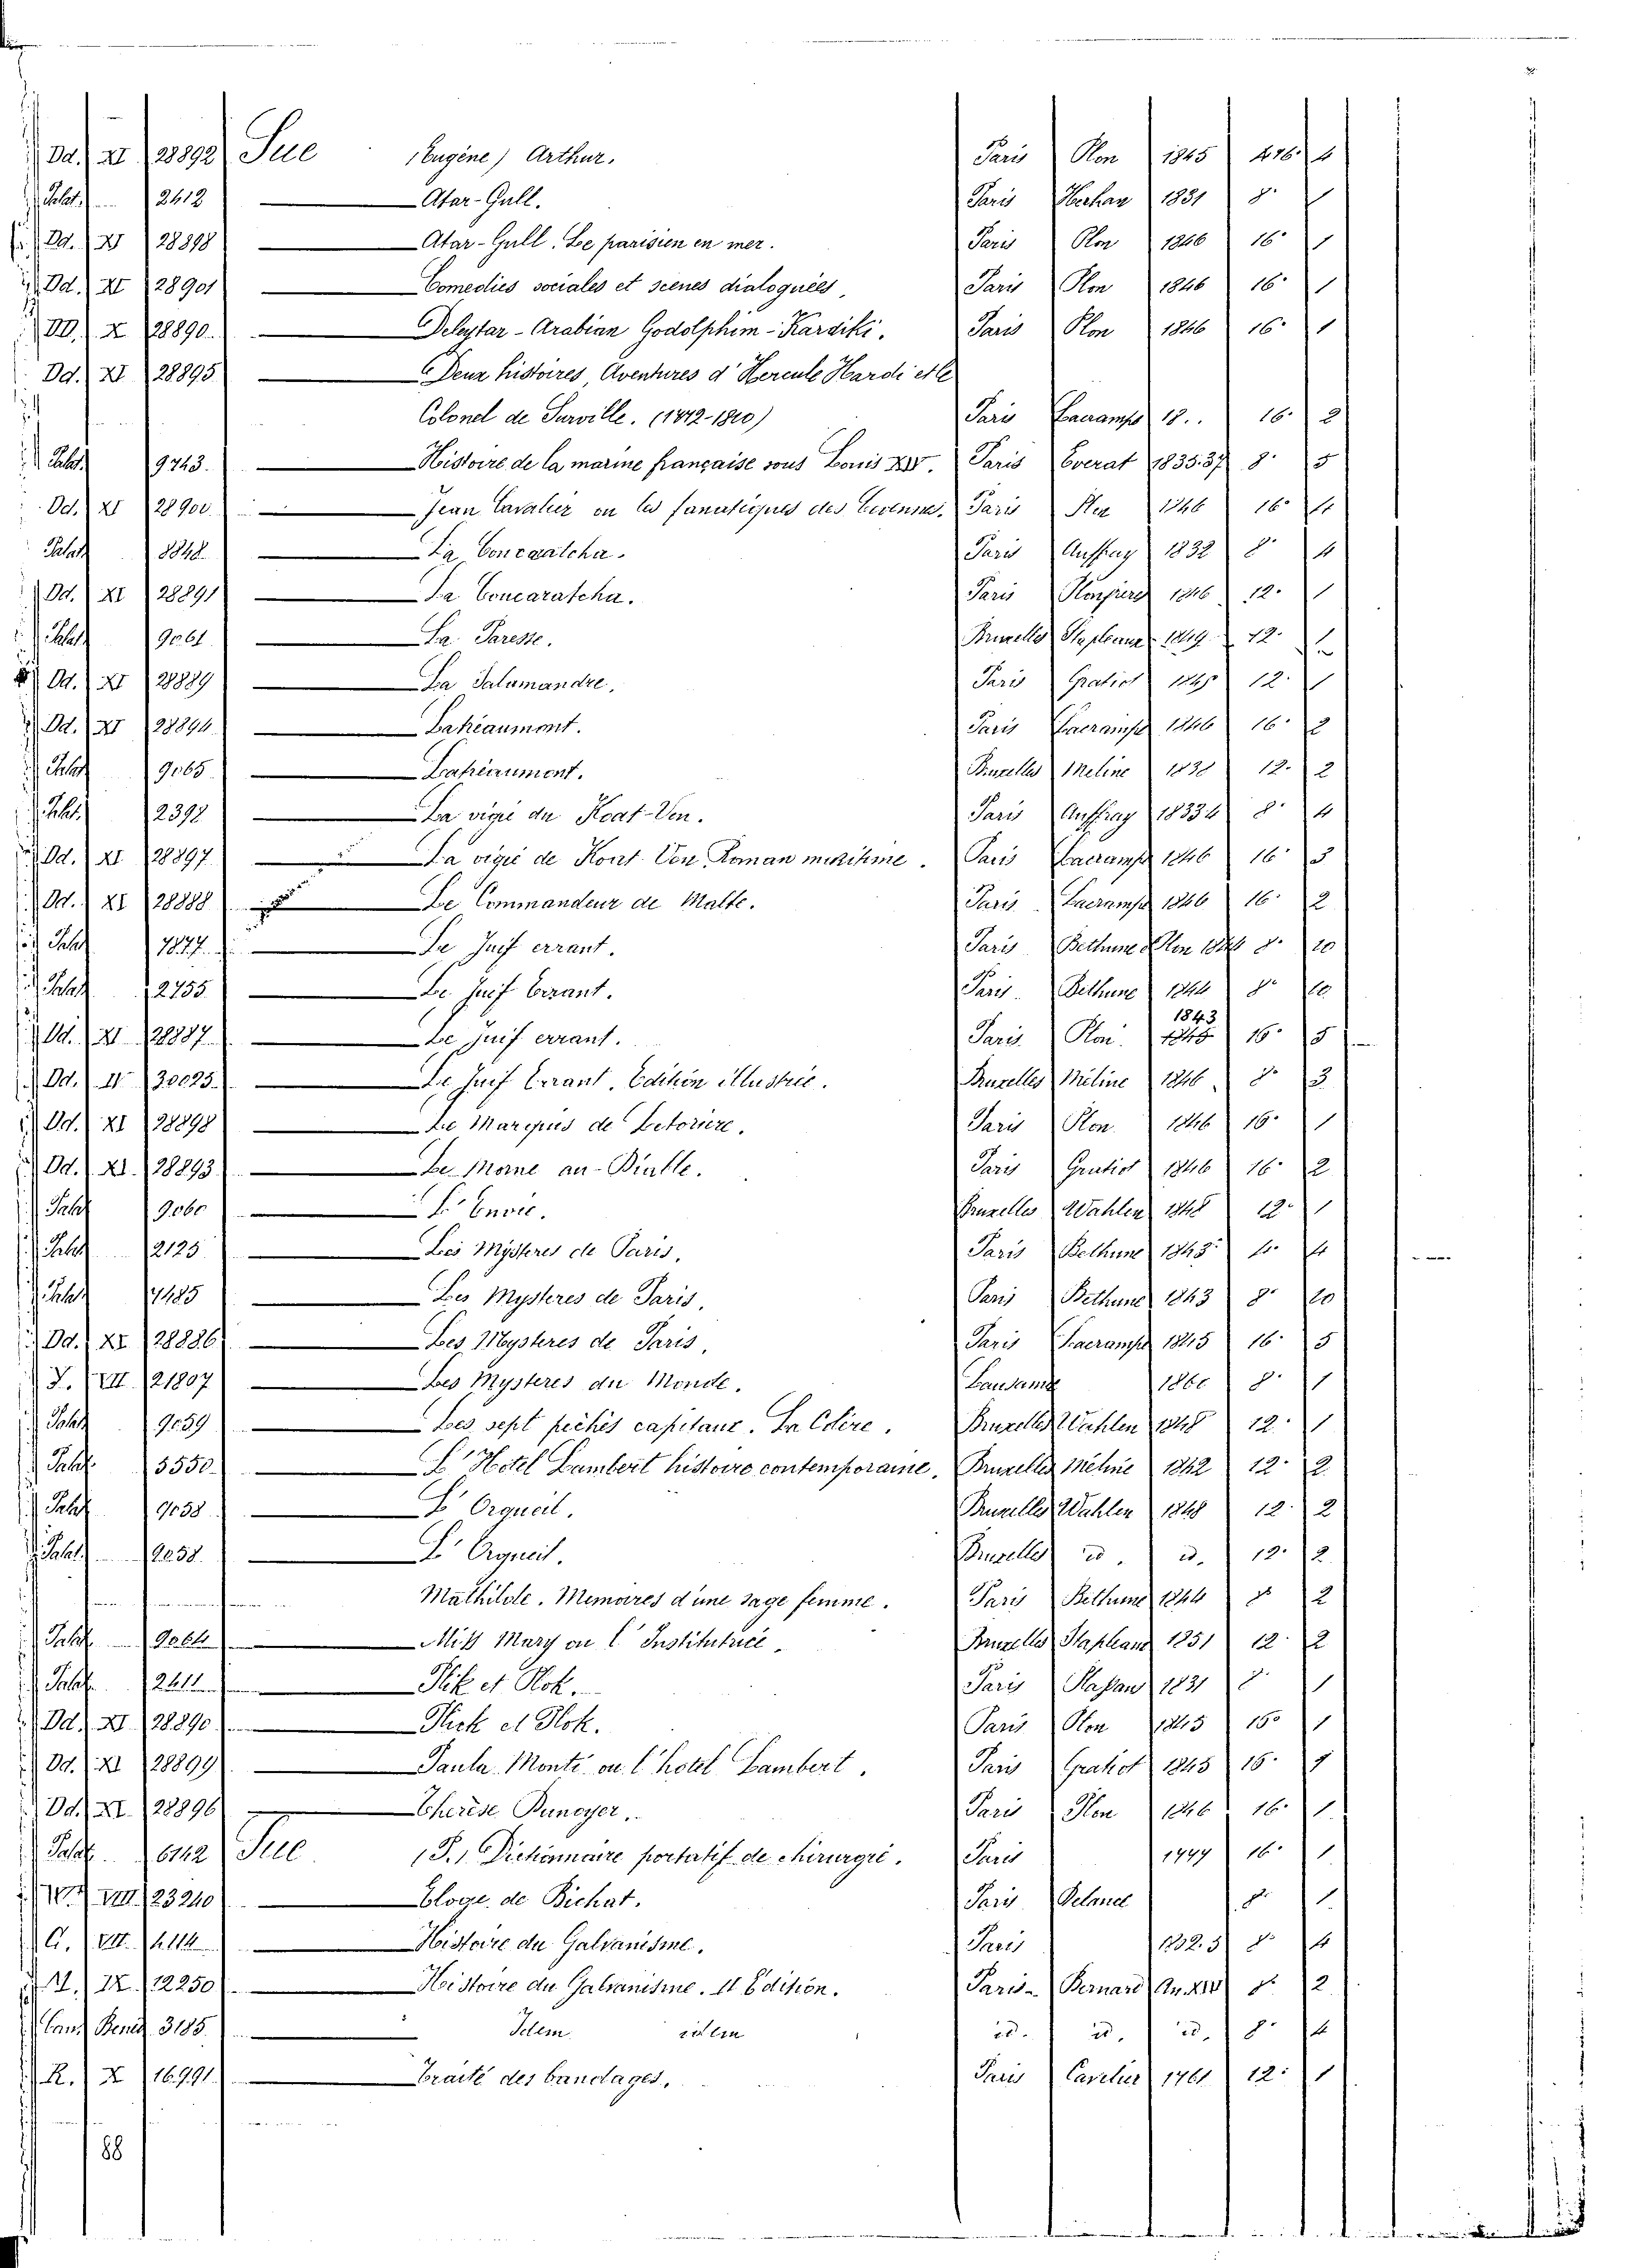 Dd. XI 28892 Sue (Eugène) Arthur. Paris Plon 1845 4
Palat. 2612 Atar-Gull. Paris 1831 8° 1
Dd. XI 28898 Atar-Gull. Le parisien en mer. Paris Plon 1846 16° 1
Dd. XI 28901 Comedies sociales et scènes dialoguées, Paris Plon 1846 16° 1
DD. X 28890. Deleytar - Arabian Godolphim - Kardiki. Paris Plon 1846 16° 1
Dd. XI 28895 Deux histoires, Aventures d'Hercule Hardi et le
Colonel de Surville. (1772-1810) Paris Lacrampe 18.. 16. 2
Palat. 9743. Histoire de la marine française sous Louis XIV. Paris Everat 1835.37 8° 5
Dd. XI 28900. Jean Cavalier ou les fanatiques des Cevennes. Paris 1846 16° 4
Palat. 8848. La Coucaratcha. Paris Auffray 1832 8° 4
Dd. XI 28891 La Coucaratcha. Paris 1846 12. 1
Palat. 9061 La Paresse. Bruxelles 1849 12. 1
Dd. XI 28889 La Salamandre. Paris Gratiot 1845 12. 1
Dd. XI 28894 Latréaumont. Paris Lacrampe 1846 16° 2
Palat. 9065 Latréaumont. Bruxelles Meline 1838 12. 2
Palat. 2392 La vigie du Koat-Ven. Paris Auffray 1833.4 8° 4
Dd. XI 28897 La vigie de Koat-Ven Roman maritime. Paris Lacrampe 1846 16° 3
Dd. XI 28888 Le Commandeur de Malte. Paris Lacrampe 1846 16° 2
Palat. 7877 Le Juif errant. Paris Bethune & Plon 1844 8° 10
Palat. 2755 Le Juif Errant. Paris Bethune 1844 8° 10
Dd. XI 28887 Le Juif errant. Paris Plon 1843 1845 16° 5
Dd. II 30025. Le Juif Errant. Edition illustrée. Bruxelles Meline 1846 8° 3
Dd. XI 28898 Le Marquis de Letorière. Paris Plon 1846 16° 1
Dd. XI. 28893 Le Morne au-Diable. Paris Gratiot 1846 16° 2
Palat. 9060 L'Envie. Bruxelles Wahlen 1848 12° 1
Palat. 2125 Les Mystères de Paris. Paris Bethune 1843 4. 4
Palat. 7485 Les Mystères de Paris, Paris Bethune 1843 8° 10
Dd. XI 28886 Les Mystères de Paris, Paris Lacrampe 1845 16° 5
VII. 21807 Les Mystères du Monde. Lausanne 1860 8° 1
Palat. 9059 Les sept péchés capitaux. La Colère. Bruxelles Wahlen 1848 12. 1
Palat. 5550. L'Hotel Lambert histoire contemporaine. Bruxelles Meline 1842 12. 2
Palat. 9058 L'Orgueil. Bruxelles Wahlen 1848 12. 2
Palat. 9058 L'Orgueil. Bruxelles id. id. 12. 2
Mathilde. Memoires d'une sage femme. Paris Bethune 1844 8° 2
Palat. 9064 Miss Mary ou l'Institutrice. Bruxelles 1851 12. 2
Palat. 2611 Plik et Plok. Paris 1831 8° 1
Dd. XI 28890 Plick et Plok. Paris Plon 1845 16° 1
Dd. XI 28899 Paula Monti ou l'hotel Lambert. Paris Gratiot 1845 16. 1
Dd. XI. 28896 Therèse Dunoyer. Paris Plon 1846 16. 1
Palat. 6142 Sue (P.) Dictionnaire portatif de chirurgie. Paris 16. 1
VIII. 23240 Eloge de Bichat. Paris Delance 8° 1
VII. Histoire du Galvanisme. Paris 8° 4
IX. 12250 Histoire du Galvanisme. II Edition. Paris Bernard An. XIV 8° 2
3185. Idem idem id. id. id. 8° 4
R. X 16991. Traité des bandages. Paris Cavelier 1761 12. 1
88